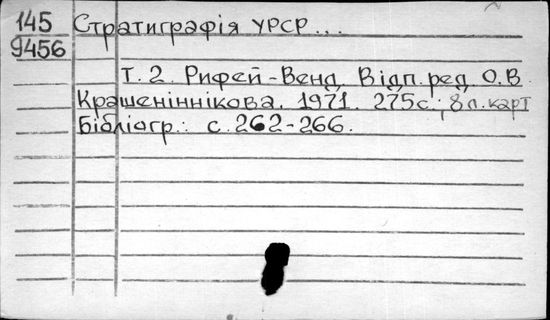 145 Стратиграфія УРСР...
9456
Т. 2. Рифей-Венд. Відп. ред. О.В.
Крашеніннікова. 1971. 275с.; 8л. карт
Бібліогр.: с. 262-266.